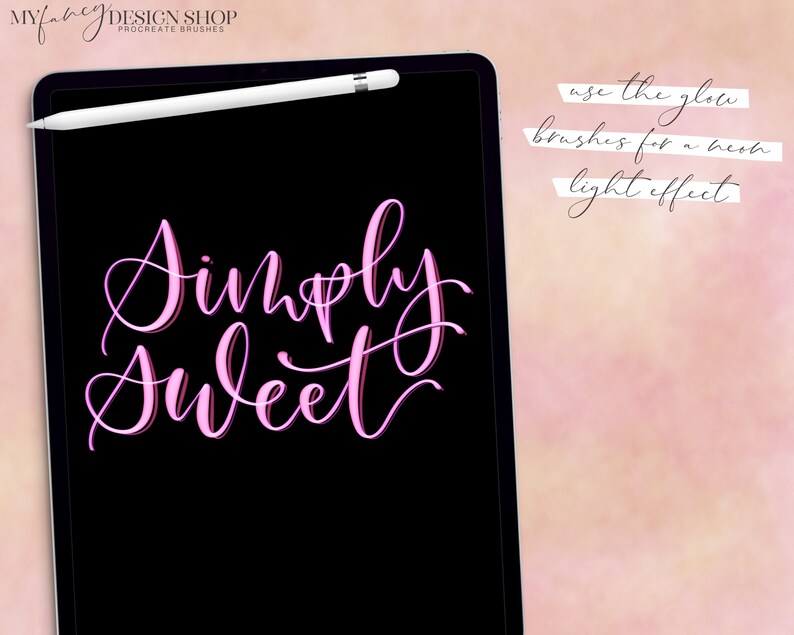 MY fancy DESIGN SHOP
PROCREATE BRUSHES
use the glow
brushes for a neon
light effect
Simply
Sweet